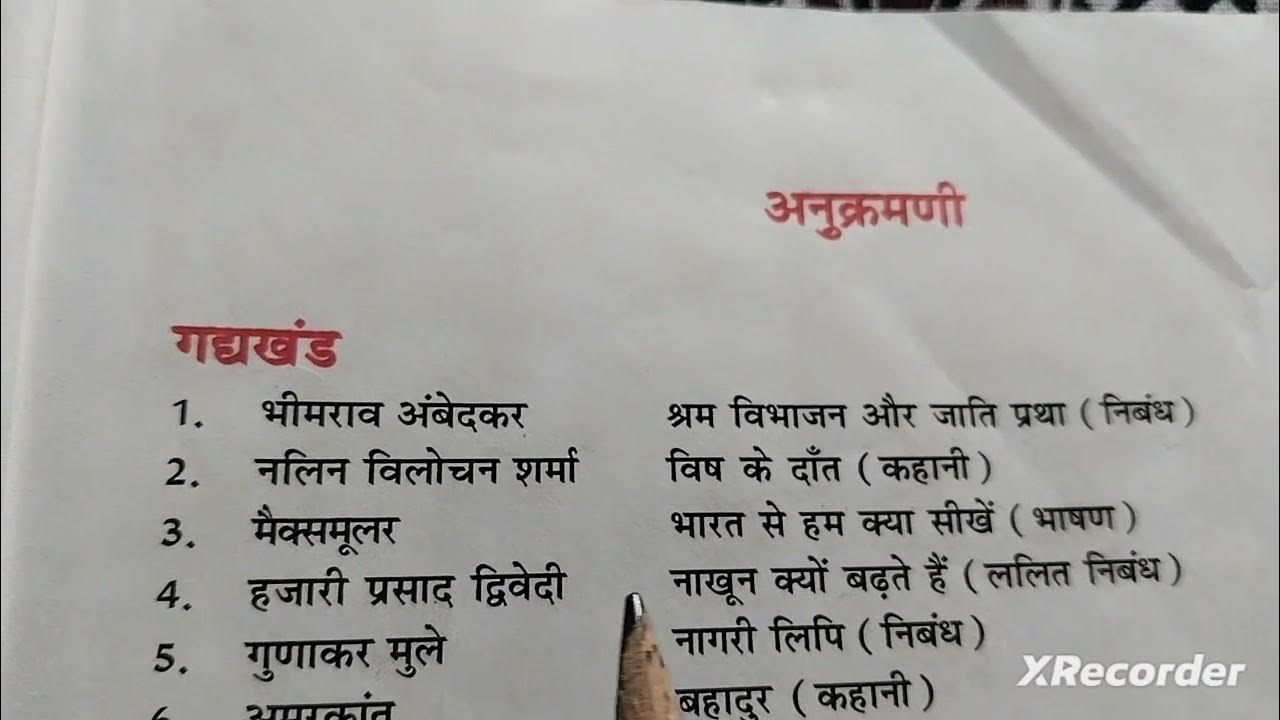 अनुक्रमणी
गद्यखंड
1. भीमराव अंबेदकर श्रम विभाजन और जाति प्रथा ( निबंध )
2. नलिन विलोचन शर्मा विष के दाँत ( कहानी )
3. मैक्समूलर भारत से हम क्या सीखें ( भाषण )
4. हजारी प्रसाद द्विवेदी नाखून क्यों बढ़ते हैं ( ललित निबंध )
5. गुणाकर मुले नागरी लिपि ( निबंध )
6. अमरकांत बहादुर ( कहानी )
XRecorder